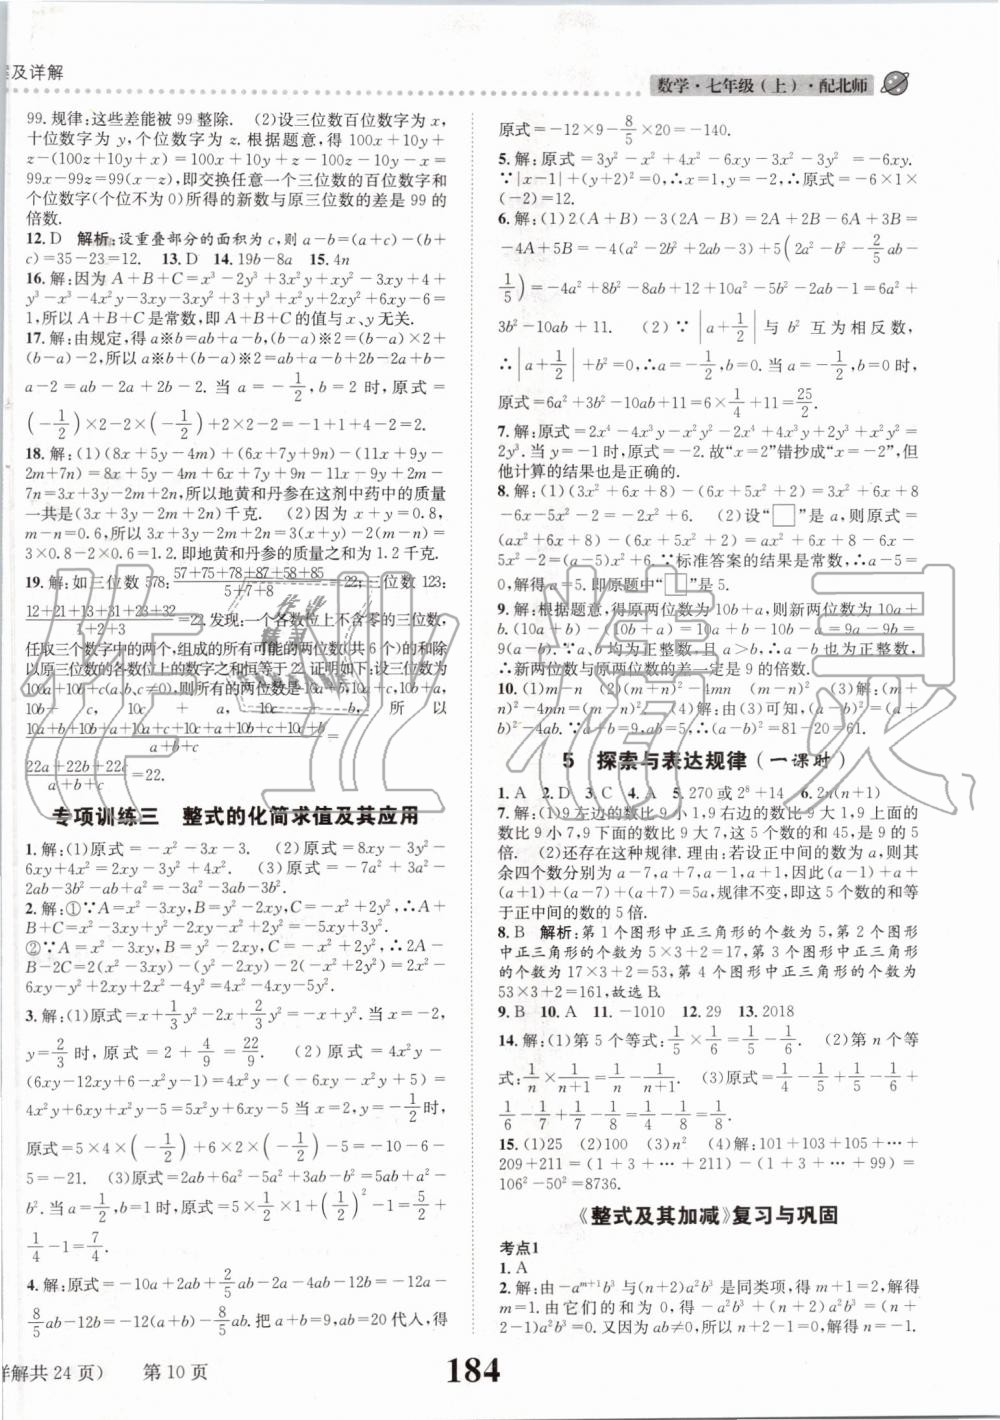 案及详解
数学·七年级（上）·配北师
99.规律:这些差能被99整除.　(2)设三位数百位数字为x,
十位数字为y,个位数字为z.根据题意,得100x+10y+
z-(100z+10y+x)=100x+10y+z-100z-10y-x=
99x-99z=99(x-z),即交换任意一个三位数的百位数字和
个位数字(个位不为0)所得的新数与原三位数的差是99的
倍数.
12.D　解析:设重叠部分的面积为c,则a-b=(a+c)-(b+
c)=35-23=12.　13.D　14.19b-8a　15.4n
16.解:因为A+B+C=x³-2y³+3x²y+xy²-3xy+4+
y³-x³-4x²y-3xy-3xy²+3+y³+x²y+2xy²+6xy-6=
1,所以A+B+C是常数,即A+B+C的值与x、y无关.
17.解:由规定,得a※b=ab+a-b,(b-a)※2=(b-a)×2+
(b-a)-2,所以a※b+(b-a)※2=ab+a-b+2b-2a+b-
a-2=ab-2a+2b-2.当a=-1/2,b=2时,原式=
(-1/2)×2-2×(-1/2)+2×2-2=-1+1+4-2=2.
18.解:(1)(8x+5y-4m)+(6x+7y+9n)-(11x+9y-
2m+7n)=8x+5y-4m+6x+7y+9n-11x-9y+2m-
7n=3x+3y-2m+2n,所以地黄和丹参在这剂中药中的质量
一共是(3x+3y-2m+2n)千克.　(2)因为x+y=0.8,
m-n=0.6,所以3x+3y-2m+2n=3(x+y)-2(m-n)=
3×0.8-2×0.6=1.2.即地黄和丹参的质量之和为1.2千克.
19.解:如三位数578;(57+75+78+87+58+85)/(5+7+8)=22;三位数123:
(12+21+13+31+23+32)/(1+2+3)=22.发现:一个各数位上不含零的三位数,
任取三个数字中的两个,组成的所有可能的两位数(共6个)的和除
以原三位数的各数位上的数字之和恒等于22.证明如下:设三位数为
100a+10b+c(a,b,c≠0),则所有的两位数是10a+b,10a+c,10b+a,
10b+c,10c+a,10c+b,所以
(10a+b+10b+a+10a+c+10c+a+10b+c+10c+b)/(a+b+c)=
(22a+22b+22c)/(a+b+c)=22.
专项训练三　整式的化简求值及其应用
1.解:(1)原式=-x²-3x-3.　(2)原式=8xy-3y²-
6xy+4x²=2xy-3y²+4x².　(3)原式=-7a²+3a²-
2ab-3b²-ab+4a²=-3ab-3b².
2.解:①∵A=x²-3xy,B=y²-2xy,C=-x²+2y²,∴A+
B+C=x²-3xy+y²-2xy-x²+2y²=-5xy+3y².
②∵A=x²-3xy,B=y²-2xy,C=-x²+2y²,∴2A-
B-2C=2(x²-3xy)-(y²-2xy)-2(-x²+2y²)=2x²-
6xy-y²+2xy+2x²-4y²=4x²-4xy-5y².
3.解:(1)原式=x+1/3y²-2x+2/3y²=-x+y².当x=-2,
y=2/3时,原式=2+4/9=22/9.　(2)原式=4x²y-
(6xy-12xy+6-x²y+1)=4x²y-6xy+12xy-6+x²y+1=
4x²y+6xy+x²y-5=5x²y+6xy-5当x=2,y=-1/2时,
原式=5×4×(-1/2)+6×2×(-1/2)-5=-10-6-
5=-21.　(3)原式=2ab+6a²-a²+3ab-b²=5ab+5a²-
b².当a=1/2,b=1时,原式=5×1/2×1+5×(1/2)²-1=5/2+
5/4-1=7/4... 
4.解:原式=-10a+2ab+2/5ab-2a-12b-4ab=-12a-
8/5ab-12b=-12(a+b)-8/5ab.把a+b=9,ab=20代入,得
原式=-12×9-8/5×20=-140.
5.解:原式=3y²-x²+4x²-6xy-3x²-3y²=-6xy.
∵|x-1|+(y+2)²=0,∴x=1,y=-2,∴原式=-6×1×
(-2)=12.
6.解:(1)2(A+B)-3(2A-B)=2A+2B-6A+3B=
-4A+5B=-4(a²-2b²+2ab-3)+5(2a²-b²-2/5ab-
1/5)=-4a²+8b²-8ab+12+10a²-5b²-2ab-1=6a²+
3b²-10ab+11.　(2)∵|a+1/2|与b²互为相反数,
∴|a+1/2|+b²=0,∴a=-1/2,b=0.当a=-1/2,b=0时,
原式=6a²+3b²-10ab+11=6×1/4+11=25/2.
7.解:原式=2x⁴-4x³y-x²y²-2x⁴+4x³y+2y³+x²y²=
2y³.当y=-1时,原式=-2.故“x=2”错抄成“x=-2”,但
他计算的结果也是正确的.
8.解:(1)(3x²+6x+8)-(6x+5x²+2)=3x²+6x+8
-6x-5x²-2=-2x²+6.　(2)设“□”是a,则原式=
(ax²+6x+8)-(6x+5x²+2)=ax²+6x+8-6x-
5x²-2=(a-5)x²+6.∵标准答案的结果是常数,∴a-5=
0,解得a=5.即原题中“□”是5.
9.解:根据题意,得原两位数为10b+a,则新两位数为10a+
b.(10a+b)-(10b+a)=10a+b-10b-a=9a-9b=
9(a-b).∵a、b均为正整数,且a>b,∴a-b也为正整数,
∴新两位数与原两位数的差一定是9的倍数.
10.(1)m-n　(2)(m+n)²-4mn　(m-n)²　(3)解:(m+
n)²-4mn=(m-n)².　(4)解:由(3)可知,(a-b)²=(a+
b)²-4ab.∵a+b=9,ab=5,∴(a-b)²=81-20=61.
5　探索与表达规律（一课时）
1.A　2.D　3.C　4.A　5.270或2⁸+14　6.2n(n+1)
7.解:(1)9左边的数比9小1,9右边的数比9大1,9上面的
数比9小7,9下面的数比9大7,这5个数的和45,是9的5
倍.　(2)还存在这种规律.理由:若设正中间的数为a,则其
余四个数分别为a-7,a+7,a-1,a+1,因此(a-1)+a+
(a+1)+(a-7)+(a+7)=5a,规律不变,即这5个数的和等
于正中间的数的5倍.
8.B　解析:第1个图形中正三角形的个数为5,第2个图形
中正三角形的个数为5×3+2=17,第3个图形中正三角形
的个数为17×3+2=53,第4个图形中正三角形的个数为
53×3+2=161,故选B.
9.B　10.A　11.-1010　12.29　13.2018
14.解:(1)第5个等式:1/5×1/6=1/5-1/6.　(2)第n个等
式:1/n×1/(n+1)=1/n-1/(n+1).　(3)原式=1/4-1/5+1/5-1/6+
1/6-1/7+1/7-1/8=1/4-1/8=1/8.
15.(1)25　(2)100　(3)n²　(4)解:101+103+105+…+
209+211=(1+3+…+211)-(1+3+…+99)=
106²-50²=8736.
《整式及其加减》复习与巩固
考点1
1.A
2.解:由-aᵐ⁺¹b³与(n+2)a²b³是同类项,得m+1=2,解得
m=1.由它们的和为0,得-a²b³+(n+2)a²b³=(n+
2-1)a²b³=0.又因为ab≠0,所以n+2-1=0,解得n=-1.
详解共24页）　第10页
184
作业精灵
作业精灵